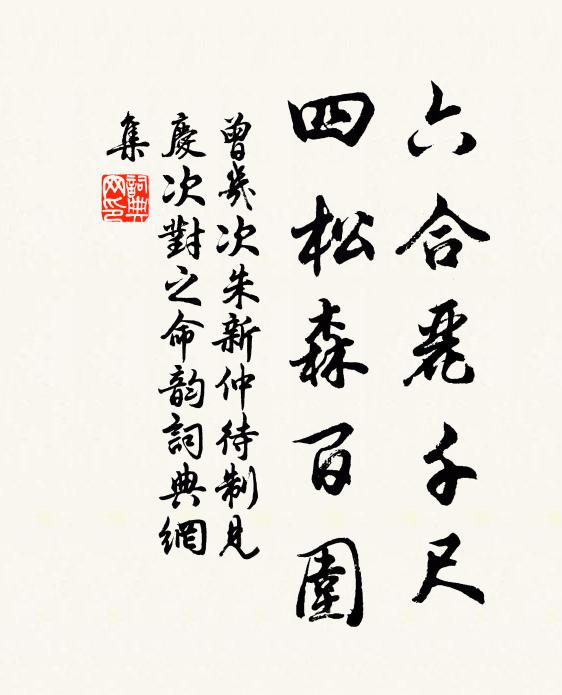 六合麗千尺
四松森百圍
曾幾次朱新仲待制見
慶次對之命韵詞典網
集
詞典网印